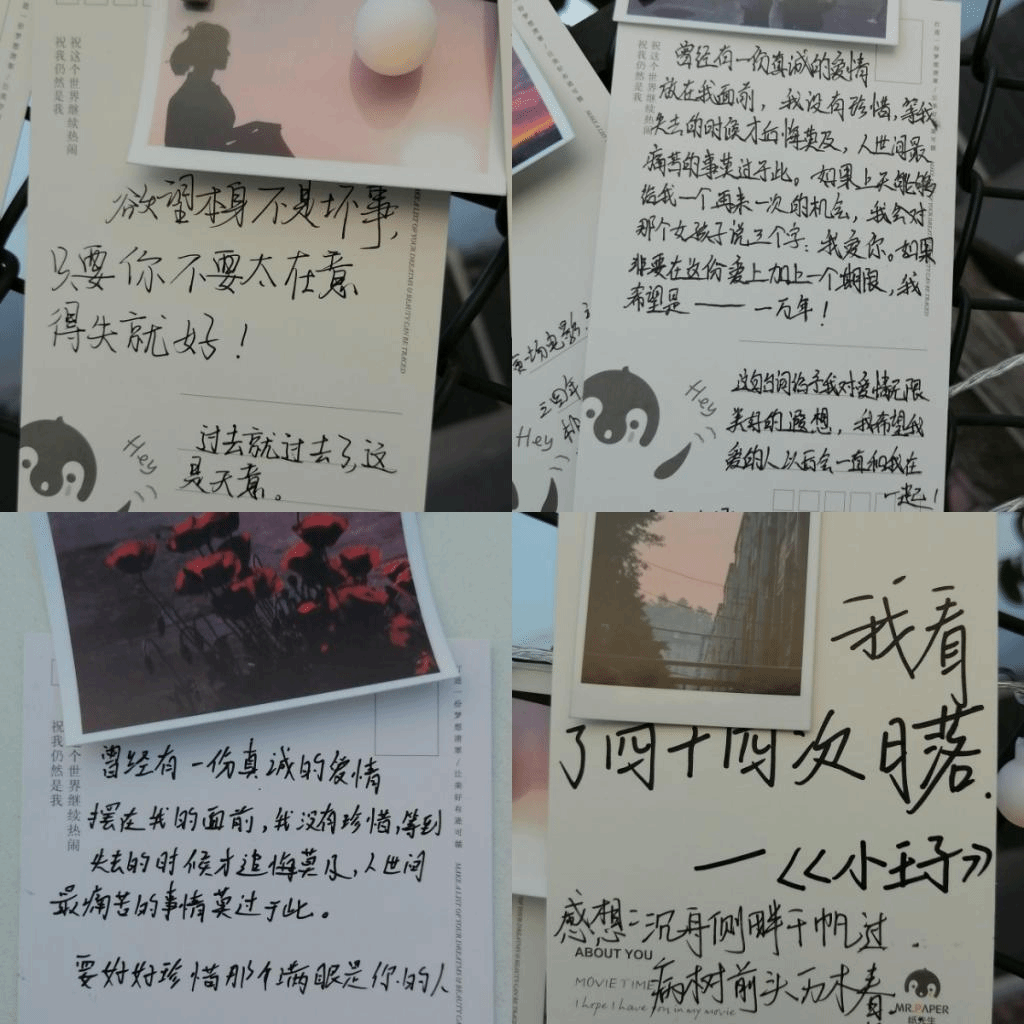 祝这个世界继续热闹
祝我仍然是我
欲望本身不是坏事，
只要你不要太在意
得失就好！
MAKE A LIST OF YOUR DREAMS & BEAUTY CAN BE TRACED
Hey
过去就过去了，这
是天意。
祝这个世界继续热闹
祝我仍然是我
曾经有一份真诚的爱情
放在我面前，我没有珍惜，等我
失去的时候才后悔莫及，人世间最
痛苦的事莫过于此。如果上天能够
给我一个再来一次的机会，我会对
那个女孩子说三个字：我爱你。如果
非要在这份爱上加上一个期限，我
希望是——一万年！
Hey
这句台词给予我对爱情无限
美好的遐想，我希望我
爱的人以后会一直和我在
一起！
Hey
个世界继续热闹
祝我仍然是我
造一份梦想清单/让美好有迹可循
曾经有一份真诚的爱情
摆在我的面前，我没有珍惜，等到
失去的时候才追悔莫及，人世间
最痛苦的事情莫过于此。
要好好珍惜那个满眼是你的人
MAKE A LIST OF YOUR DREAMS & BEAUTY CAN BE TRACED
我看
了四十四次日落.
—《小王子》
感想：沉舟侧畔千帆过.
ABOUT YOU
病树前头万木春.
MOVIE TIME
I hope I have you in my movie
MR.PAPER
纸先生